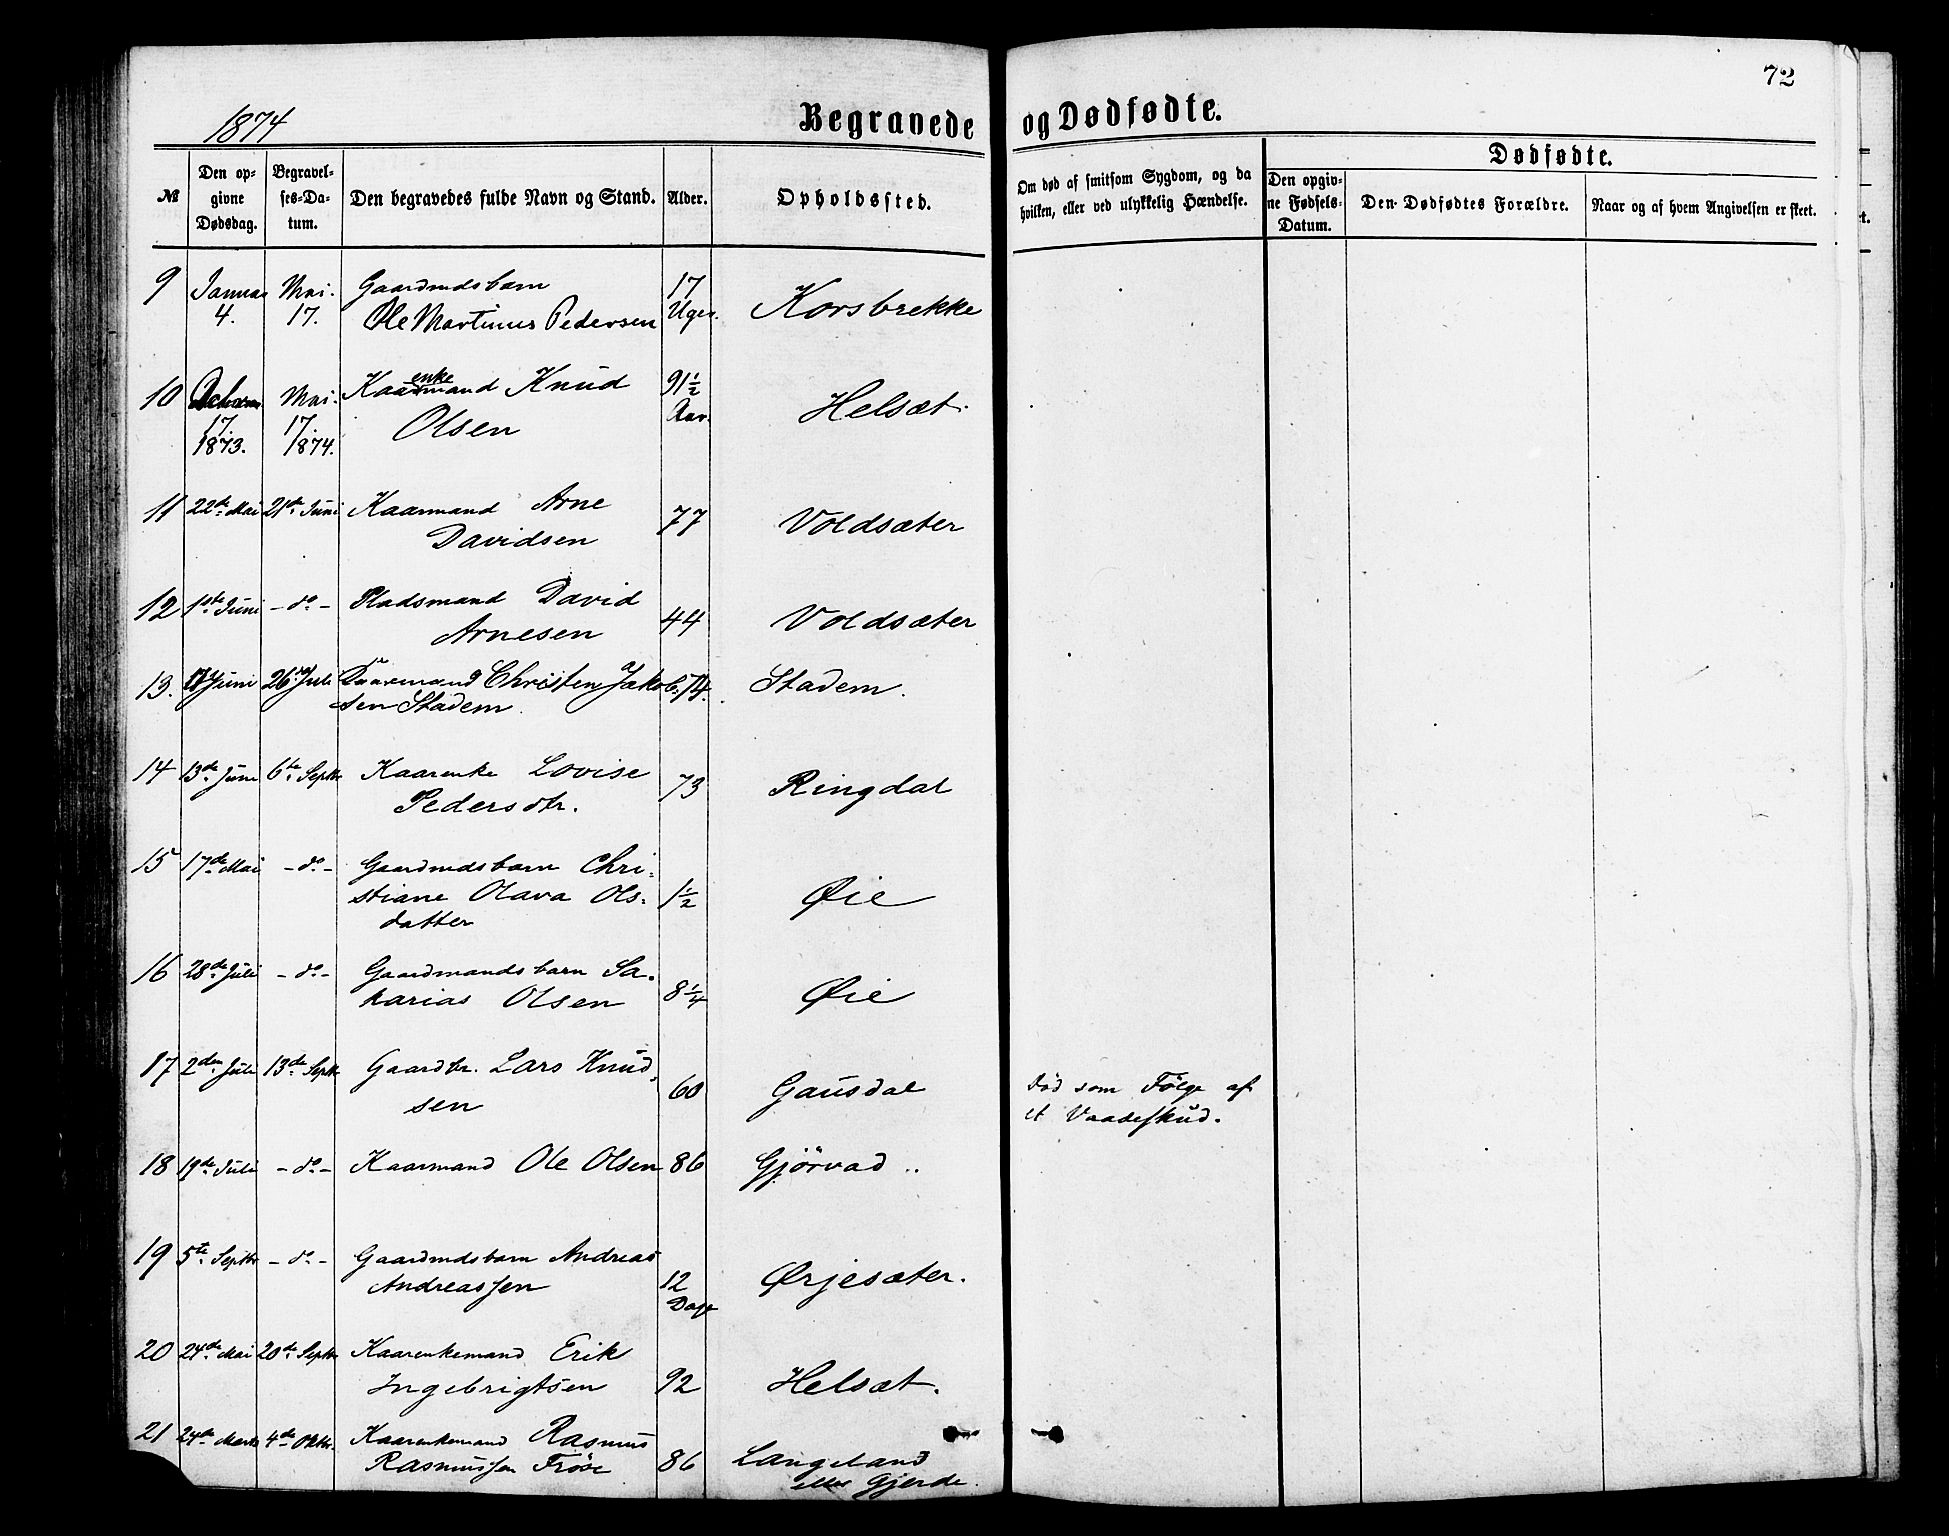 72
1874
Begravede og Dødfødte.
№
Den op-
givne
Dødsdag.
Begravel-
ses-Da-
tum.
Den begravedes fulde Navn og Stand.
Alder.
Opholdssted.
Om død af smitsom Sygdom, og da
hvilken, eller ved ulykkelig Hændelse.
Dødfødte.
Den opgiv-
ne Fødsels-
Datum.
Den Dødfødtes Forældre.
Naar og af hvem Angivelsen er skeet.
t.
9 Januar Mai. Gaardmdsbarn 17
4. 17. Ole Martinus Pedersen Uger. Korsbrekke
10 Mai. Kaarmand enke Knud 91½
17. 17. Olsen Aar. Helsæt.
1873. 1874.
11 22de Mai 21de Juni Kaarmand Arne
Davidsen 77 Voldsæter
12 1ste Juni - do - Pladsmand David
Arnesen 44 Voldsæter
13. Juni 26 Juli Kaarmand Christen Jakob. 74. Stadem.
sen Stadem.
14 13de Juni 6te Septbr Kaarenke Lovise
Pedersdtr. 73 Ringdal
15 17de Mai - do - Gaardmdsbarn Chri-
stiane Olava Ols- 1½ Øie
datter
16 28de Juli - do - Gaardmandsbarn Sa-
karias Olsen 8¼ Øie
17 2den Juli 13de Septbr Gaardbr. Lars Knud-
sen 60 Gausdal
Død som Følge af
et Vaadeskud.
18 19de Juli - do - Kaarmand Ole Olsen 86 Gjörvad ..
19 5te Septbr - do - Gaardmdsbarn Andreas
Andreassen 12 Ørjesæter.
Dage
20 24de Mai 20de Septbr Kaarenkemand Erik
Ingebrigtsen 92 Helsæt.
21 24de Marts 4de Oktbr. Kaarenkemand Rasmus
Rasmussen Fröse 86 Langeland
eller Gjerde.